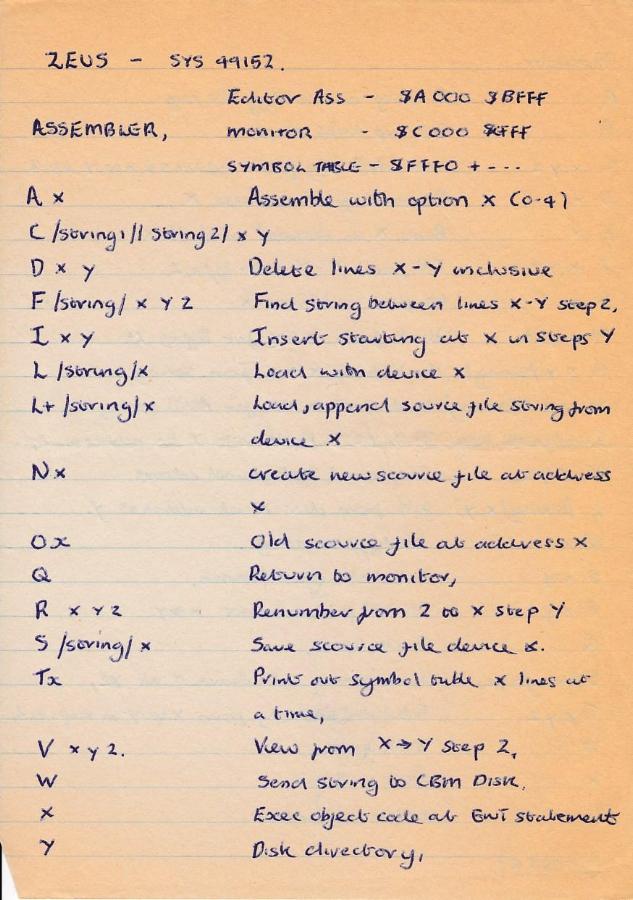 ZEUS - SYS 49152.
Editor Ass - $A000 $BFFF
ASSEMBLER, monitor - $C000 $CFFF
SYMBOL TABLE - $FFF0 + ---
A x Assemble with option x (0-4)
C /string1/1 string2/ x y
D x y Delete lines x-y inclusive
F /string/ x y z Find string between lines x-y step z,
I x y Insert starting at x in steps y
L /string/x Load with device x
L+ /string/x Load, append source file string from
device x
N x create new scource file at address
x
O x Old scource file at address x
Q Return to monitor,
R x y z Renumber from z to x step y
S /string/ x Save scource file device x.
Tx Print out symbol table x lines at
a time,
V x y z. View from x→y step z,
W Send string to CBM DISK,
X Exec object code at ENT statement
Y Disk directory,